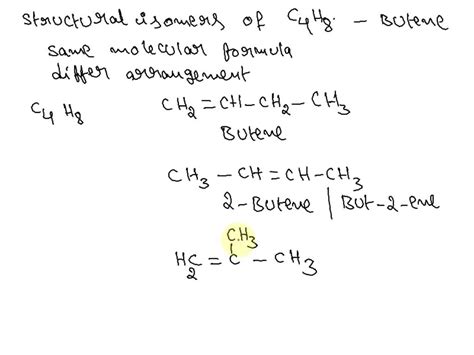 Structural isomers of C4H8. - Butene
same molecular formula
differ arrangement
C4 H8 CH2 = CH - CH2 - CH3
Butene
CH3 - CH = CH - CH3
2 - Butene | But - 2 - ene
CH3
H2C = C - CH3